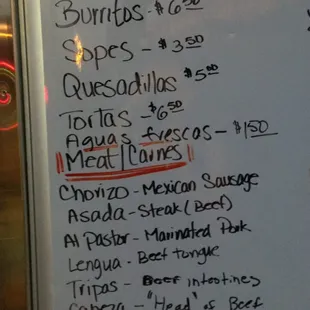 Burritos - $6.50
Sopes - $3.50
Quesadillas $5.00
Tortas - $6.50
Aguas frescas - $1.50
Meat/Carnes
Chorizo - Mexican Sausage
Asada - Steak (Beef)
Al Pastor - Marinated Pork
Lengua - Beef tongue
Tripas - Beef intestines
Cabeza - "Head" of Beef